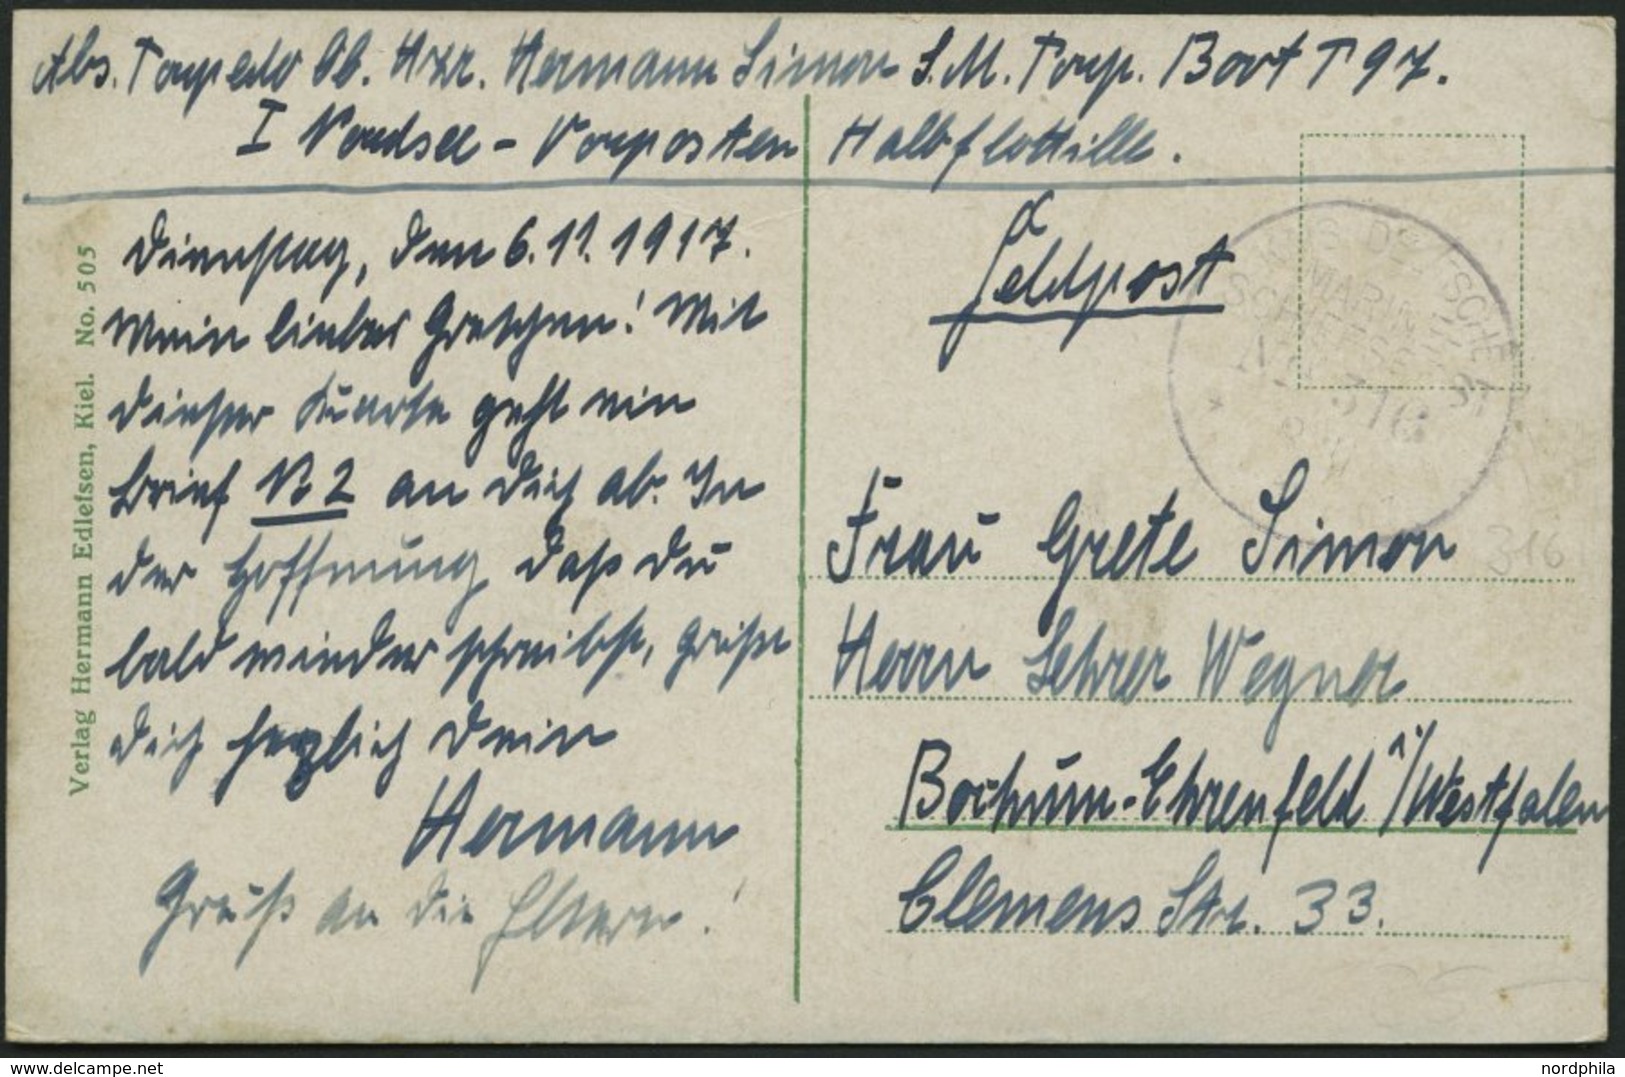 Abs. Torpedo Ob. Hzr. Hermann Simon S.M. Torp. Boot T 97.
I Nordsee - Vorposten Halbflottille.
Dienstag, den 6.11.1917.
Mein liebes Gretchen! Mit
dieser Karte geht ein
Brief No 2 an Dich ab. In
der Hoffnung daß Du
bald wieder schreibst, grüßt
Dich herzlich Dein
Hermann
Gruß an die Eltern!
Verlag Hermann Edlefsen, Kiel. No. 505
Feldpost
DEUTSCHE
MARINE
316
Frau Grete Simon
316
Herrn Lehrer Wegner
Bochum-Ehrenfeld i/Westfalen
Clemens Str. 33.
nordphila
www.delcampe.net